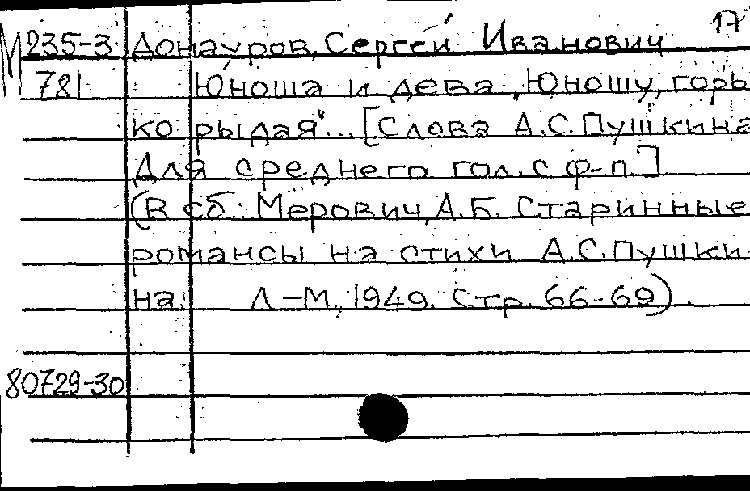 17
М 235-3 Донауров, Сергей Иванович
781 Юноша и дева „Юношу, горь
ко рыдая"... [Слова А.С. Пушкина
Для среднего гол. с ф-п.]
(В сб: Мерович, А.Б. Старинные
романсы на стихи А.С. Пушки
на. Л-М, 1949. Стр. 66-69).
80729-30